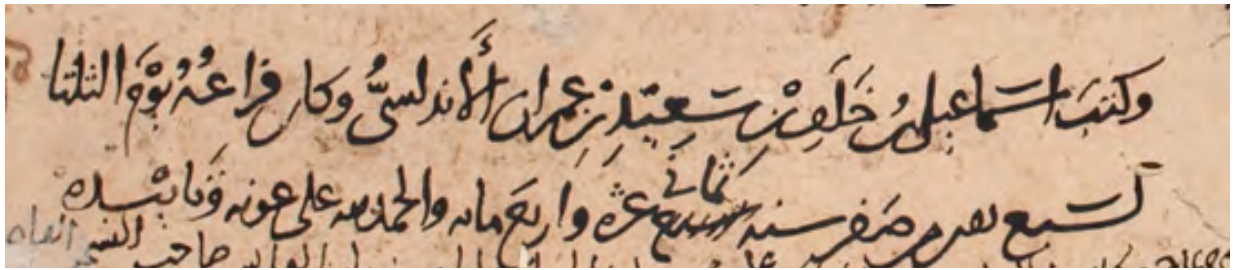 وكتب اسماعيل بن خلف بن سعيد بن عمران الأندلسيُّ وكان فراغُهُ يَوْمَ الثلثا
لسبع بقين من صفر سنه ثمانى عشره وَاربع مائه والحمد لله على عونه وتاييده